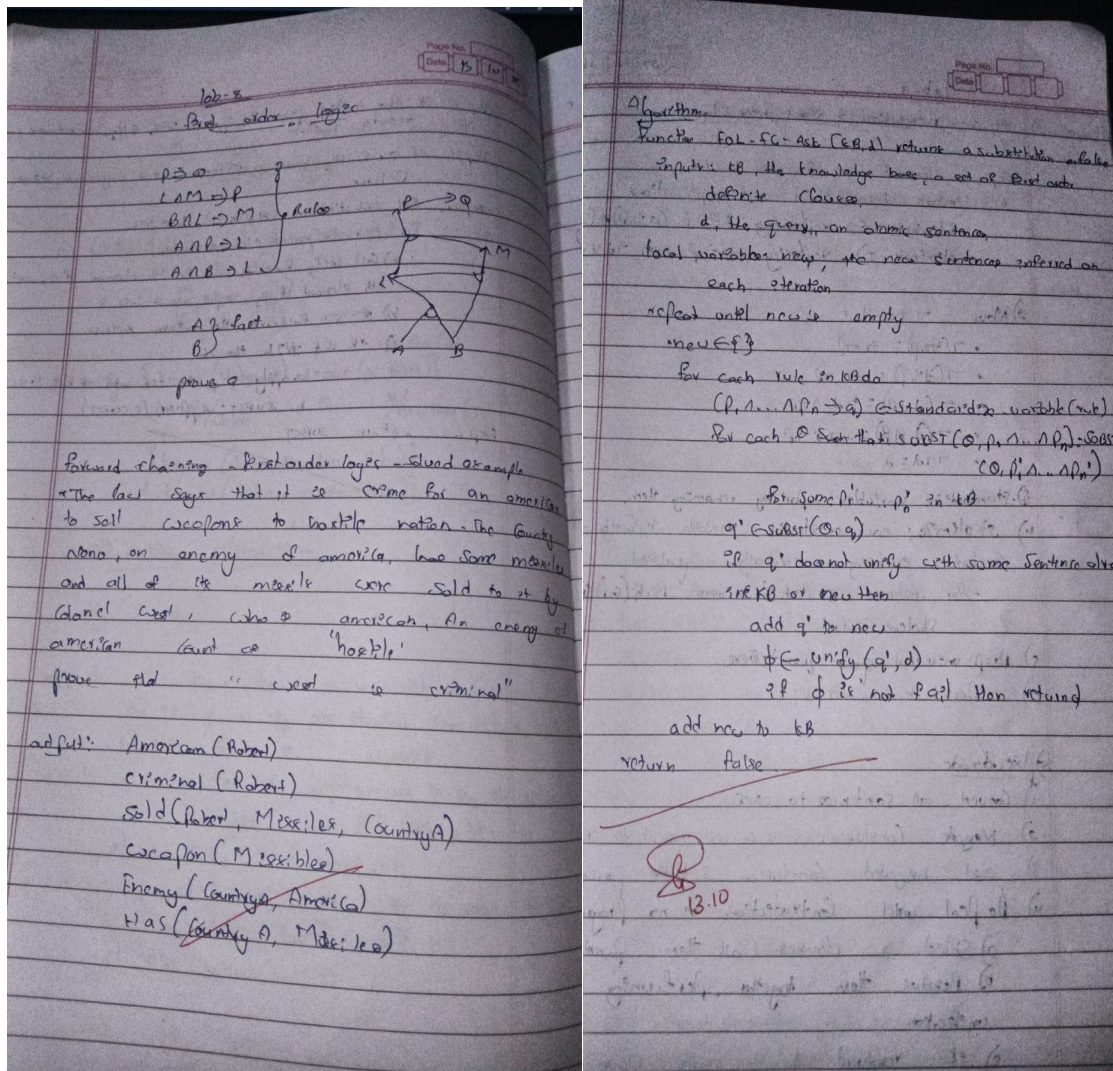 Page No.
Date 13 10
lab-8
first order logic
P⇒Q
L∧M⇒P
B∧L⇒M
A∧P⇒L
A∧B⇒L
Rules
A
B
fact
prove Q
P → Q
M
L
A B
forward chaining - first order logic - solved example
*The law says that it is crime for an american
to sell weapons to hostile nation. The County
Nono, an enemy of america, has some missiles
and all of its missils were sold to it by
Colonel west, who is american, An enemy of
american count as 'hostile'
prove that " west is criminal"
output: American (Robert)
criminal (Robert)
Sold (Robert, Missiles, CountryA)
weapon (Missibles)
Enemy (CountryA, America)
Has (Country A, Missiles)
Page No.
Date
Algorithm
function FOL-FC-Ask (KB, α) returns a substitution or false
inputs: KB, the knowledge base, a set of first order
definite clauses
α, the query, an atomic sentence
local variables new, the new sentences inferred on
each iteration
repeat until new is empty
new ∈ { }
for each rule in KB do
(P₁ ∧... ∧ Pn ⇒ q) ∈ standardize variable (rule)
for each θ such that SUBST (θ, P₁ ∧... ∧ Pn) = SUBST
(θ, P₁' ∧... ∧ Pn')
for some P₁', Pn' in KB
q' ∈ SUBST (θ, q)
if q' doesnot unify with some Sentence
in KB or new then
add q' to new
ϕ ∈ unify (q', α)
if ϕ is not fail then return ϕ
add new to KB
return false
13.10